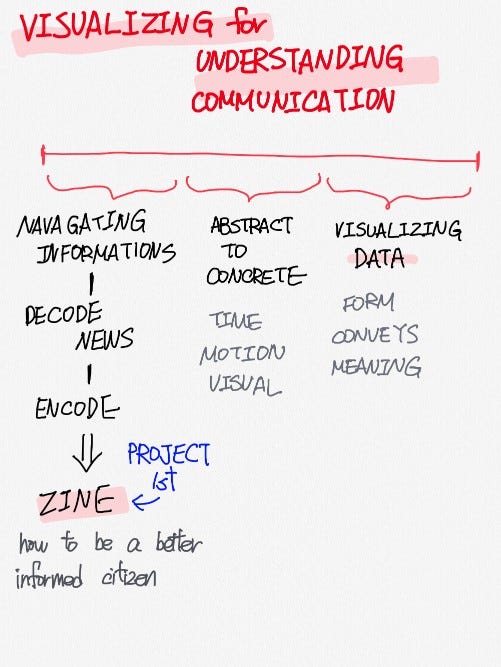 VISUALIZING for
UNDERSTANDING
COMMUNICATION
NAVAGATING
INFORMATIONS
DECODE
NEWS
ENCODE
ZINE
PROJECT
1st
how to be a better
informed citizen
ABSTRACT
TO
CONCRETE
TIME
MOTION
VISUAL
VISUALIZING
DATA
FORM
CONVEYS
MEANING